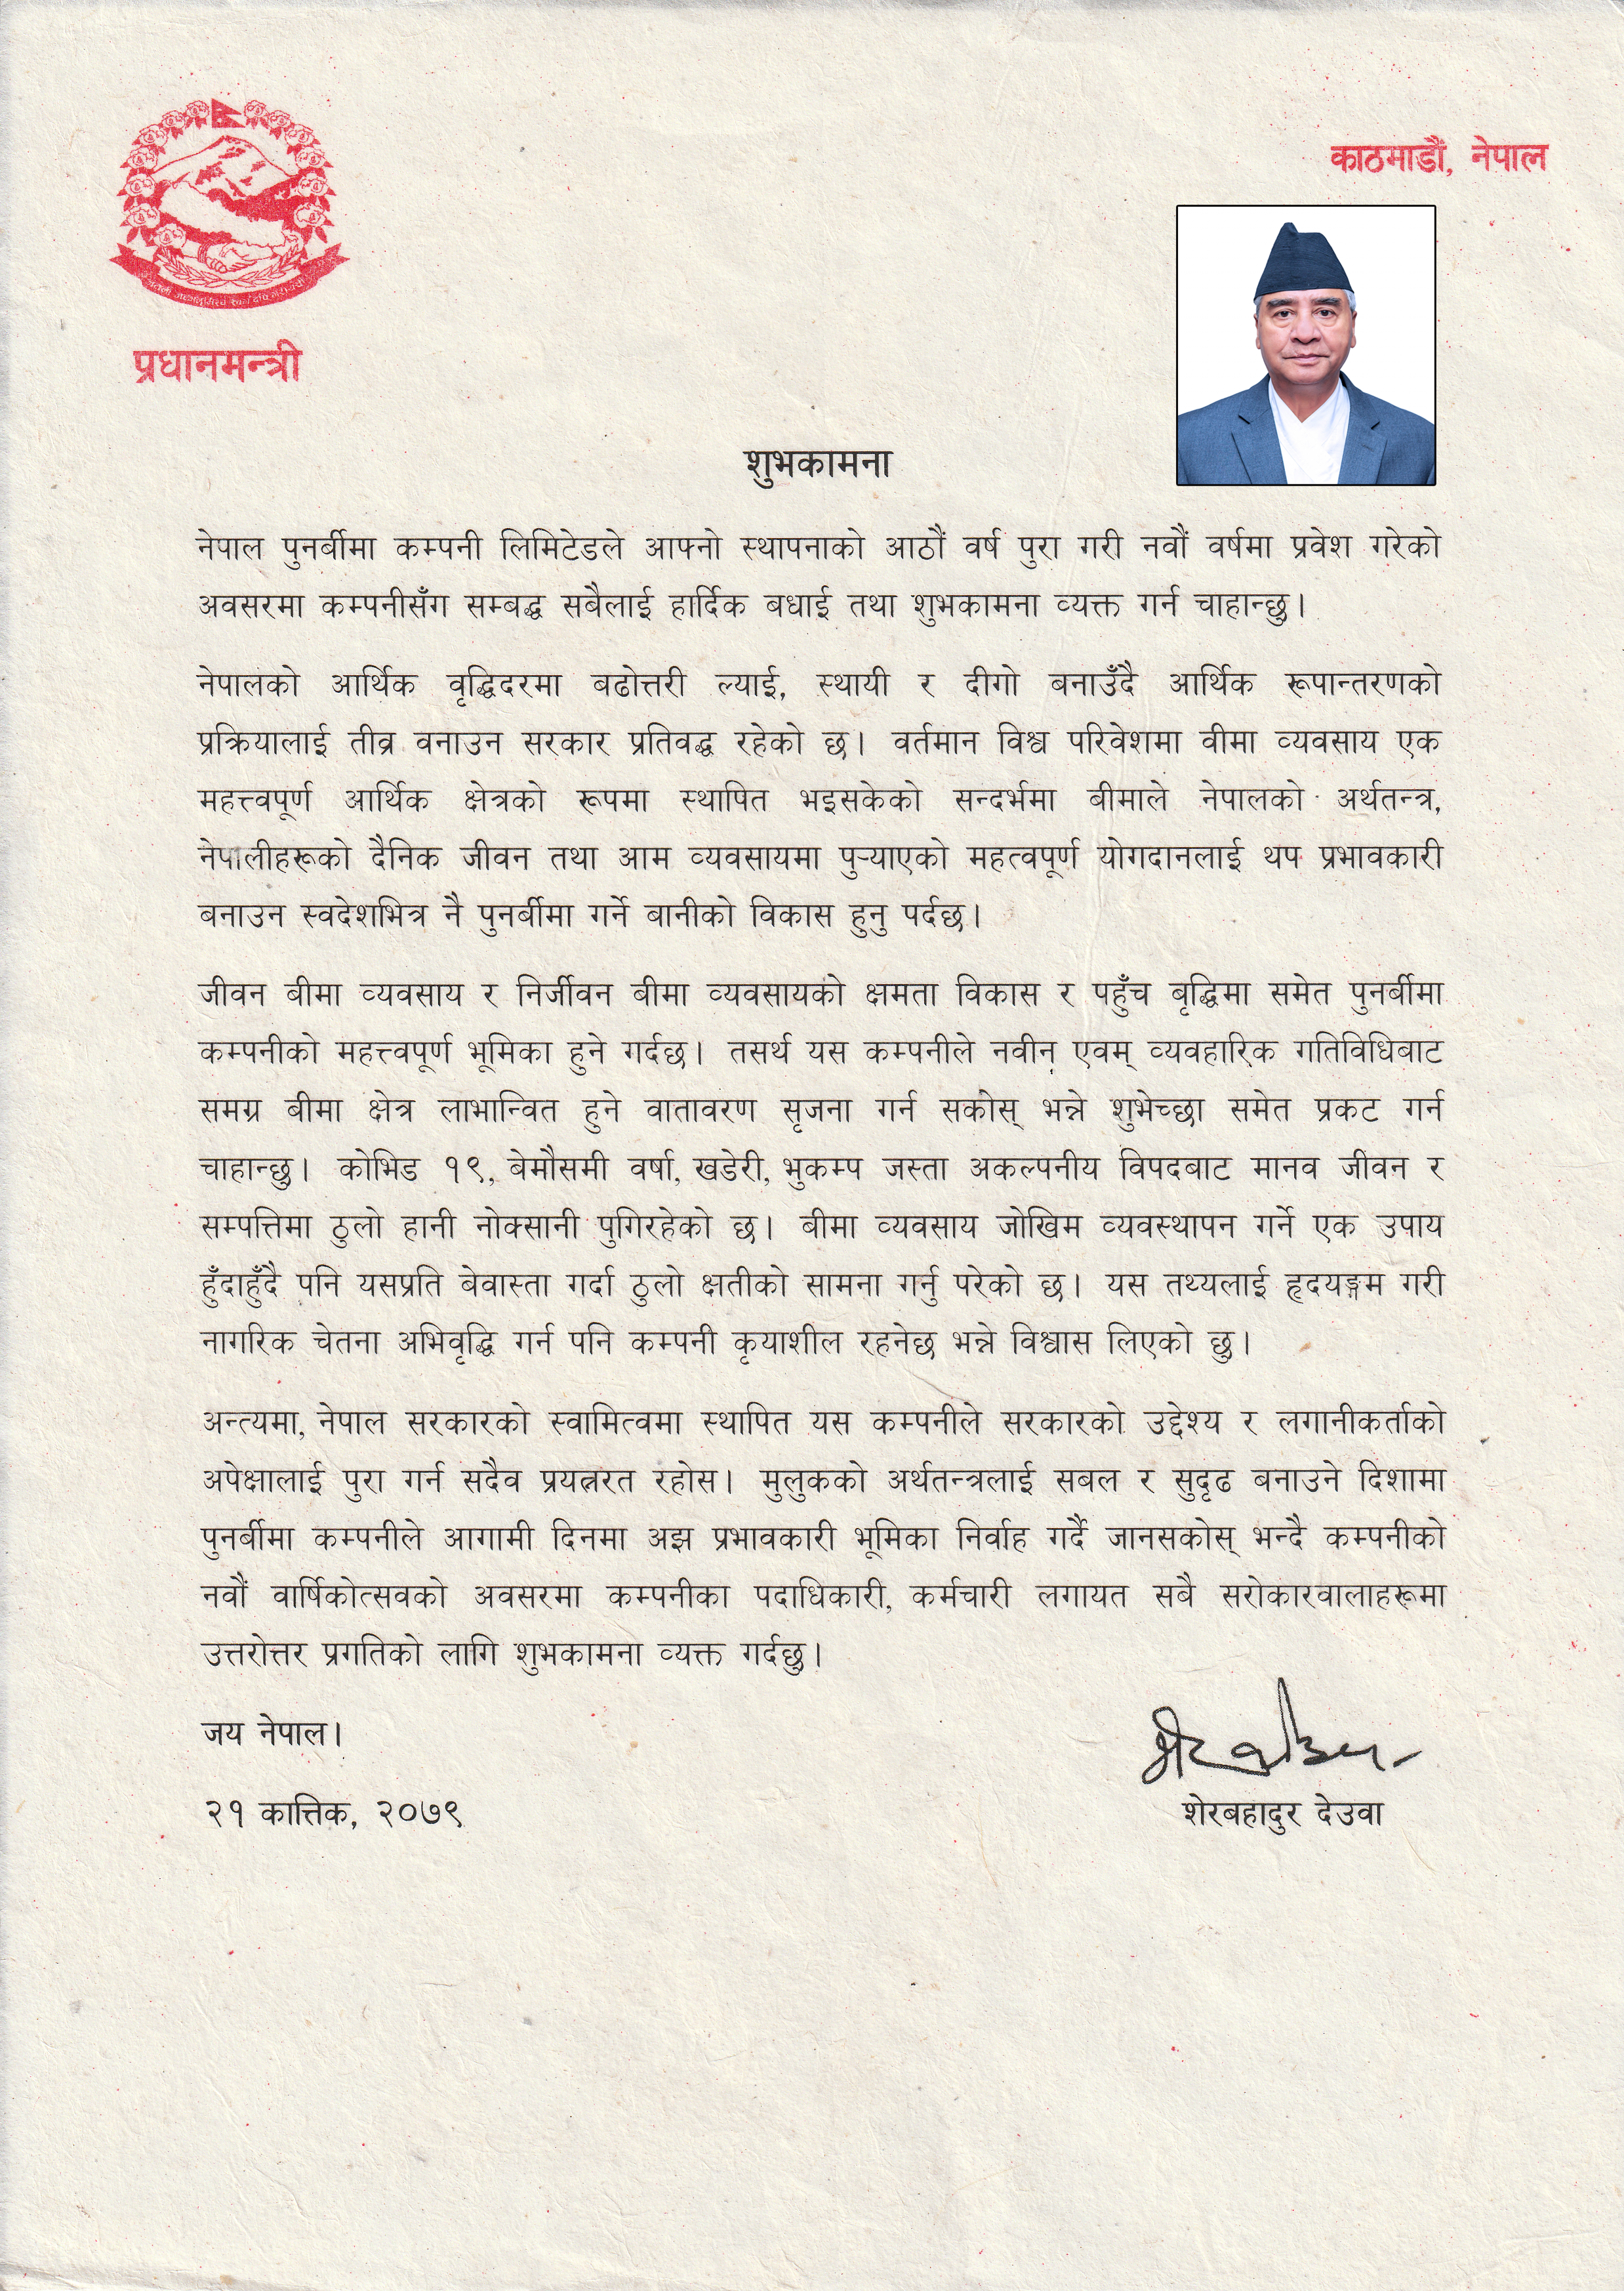 काठमाडौं, नेपाल
प्रधानमन्त्री
शुभकामना
नेपाल पुनर्बीमा कम्पनी लिमिटेडले आफ्नो स्थापनाको आठौं वर्ष पुरा गरी नवौं वर्षमा प्रवेश गरेको
अवसरमा कम्पनीसँग सम्बद्ध सबैलाई हार्दिक बधाई तथा शुभकामना व्यक्त गर्न चाहान्छु।
नेपालको आर्थिक वृद्धिदरमा बढोत्तरी ल्याई, स्थायी र दीगो बनाउँदै आर्थिक रूपान्तरणको
प्रक्रियालाई तीव्र वनाउन सरकार प्रतिवद्ध रहेको छ। वर्तमान विश्व परिवेशमा वीमा व्यवसाय एक
महत्त्वपूर्ण आर्थिक क्षेत्रको रूपमा स्थापित भइसकेको सन्दर्भमा बीमाले नेपालको अर्थतन्त्र,
नेपालीहरूको दैनिक जीवन तथा आम व्यवसायमा पुर्‍याएको महत्वपूर्ण योगदानलाई थप प्रभावकारी
बनाउन स्वदेशभित्र नै पुनर्बीमा गर्ने बानीको विकास हुनु पर्दछ।
जीवन बीमा व्यवसाय र निर्जीवन बीमा व्यवसायको क्षमता विकास र पहुँच बृद्धिमा समेत पुनर्बीमा
कम्पनीको महत्त्वपूर्ण भूमिका हुने गर्दछ। तसर्थ यस कम्पनीले नवीन् एवम् व्यवहारिक गतिविधिबाट
समग्र बीमा क्षेत्र लाभान्वित हुने वातावरण सृजना गर्न सकोस् भन्ने शुभेच्छा समेत प्रकट गर्न
चाहान्छु। कोभिड १९, बेमौसमी वर्षा, खडेरी, भुकम्प जस्ता अकल्पनीय विपदबाट मानव जीवन र
सम्पत्तिमा ठुलो हानी नोक्सानी पुगिरहेको छ। बीमा व्यवसाय जोखिम व्यवस्थापन गर्ने एक उपाय
हुँदाहुँदै पनि यसप्रति बेवास्ता गर्दा ठुलो क्षतीको सामना गर्नु परेको छ। यस तथ्यलाई हृदयङ्गम गरी
नागरिक चेतना अभिवृद्धि गर्न पनि कम्पनी कृयाशील रहनेछ भन्ने विश्वास लिएको छु।
अन्त्यमा, नेपाल सरकारको स्वामित्वमा स्थापित यस कम्पनीले सरकारको उद्देश्य र लगानीकर्ताको
अपेक्षालाई पुरा गर्न सदैव प्रयत्नरत रहोस। मुलुकको अर्थतन्त्रलाई सबल र सुदृढ बनाउने दिशामा
पुनर्बीमा कम्पनीले आगामी दिनमा अझ प्रभावकारी भूमिका निर्वाह गर्दै जानसकोस् भन्दै कम्पनीको
नवौं वार्षिकोत्सवको अवसरमा कम्पनीका पदाधिकारी, कर्मचारी लगायत सबै सरोकारवालाहरूमा
उत्तरोत्तर प्रगतिको लागि शुभकामना व्यक्त गर्दछु।
जय नेपाल।
२१ कात्तिक, २०७९
शेरबहादुर देउवा